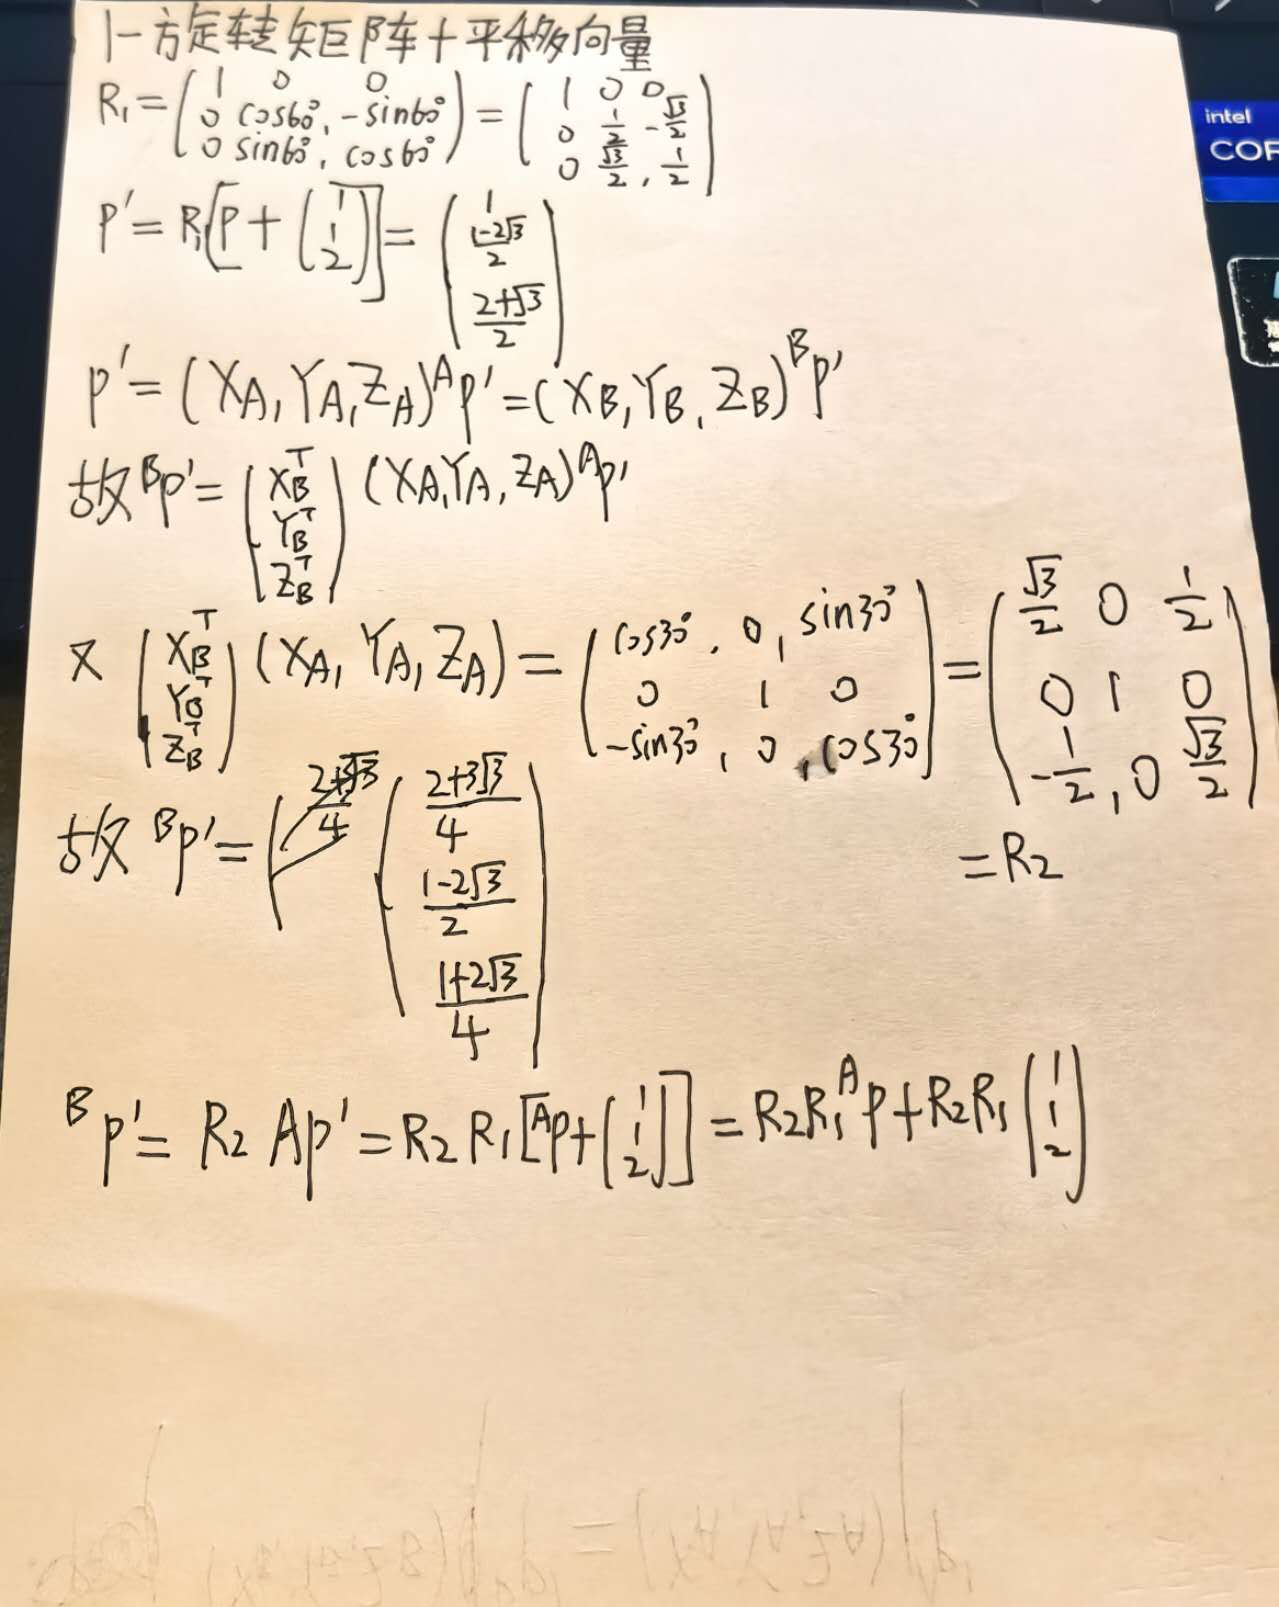 1-旋转矩阵+平移向量
R₁ = ( 1 0 0 ; 0 cos60°, -sin60° ; 0 sin60°, cos60° ) = ( 1 0 0 ; 0 1/2 -√3/2 ; 0 √3/2, 1/2 )
P' = R₁[P + ( 1 ; 1 ; 2 )] = ( 1 ; (1-2√3)/2 ; (2+√3)/2 )
P' = (X_A, Y_A, Z_A) ^A P' = (X_B, Y_B, Z_B) ^B P'
故 ^B P' = ( X_B^T ; Y_B^T ; Z_B^T ) (X_A, Y_A, Z_A) ^A P'
又 ( X_B^T ; Y_B^T ; Z_B^T ) (X_A, Y_A, Z_A) = ( cos30°, 0, sin30° ; 0 1 0 ; -sin30°, 0, cos30° ) = ( √3/2 0 1/2 ; 0 1 0 ; -1/2, 0 √3/2 )
= R₂
故 ^B P' = ( (2+3√3)/4 ; (1-2√3)/2 ; (1+2√3)/4 )
^B P' = R₂ AP' = R₂ R₁[^A P + ( 1 ; 1 ; 2 )] = R₂R₁ ^A P + R₂R₁ ( 1 ; 1 ; 2 )
intel